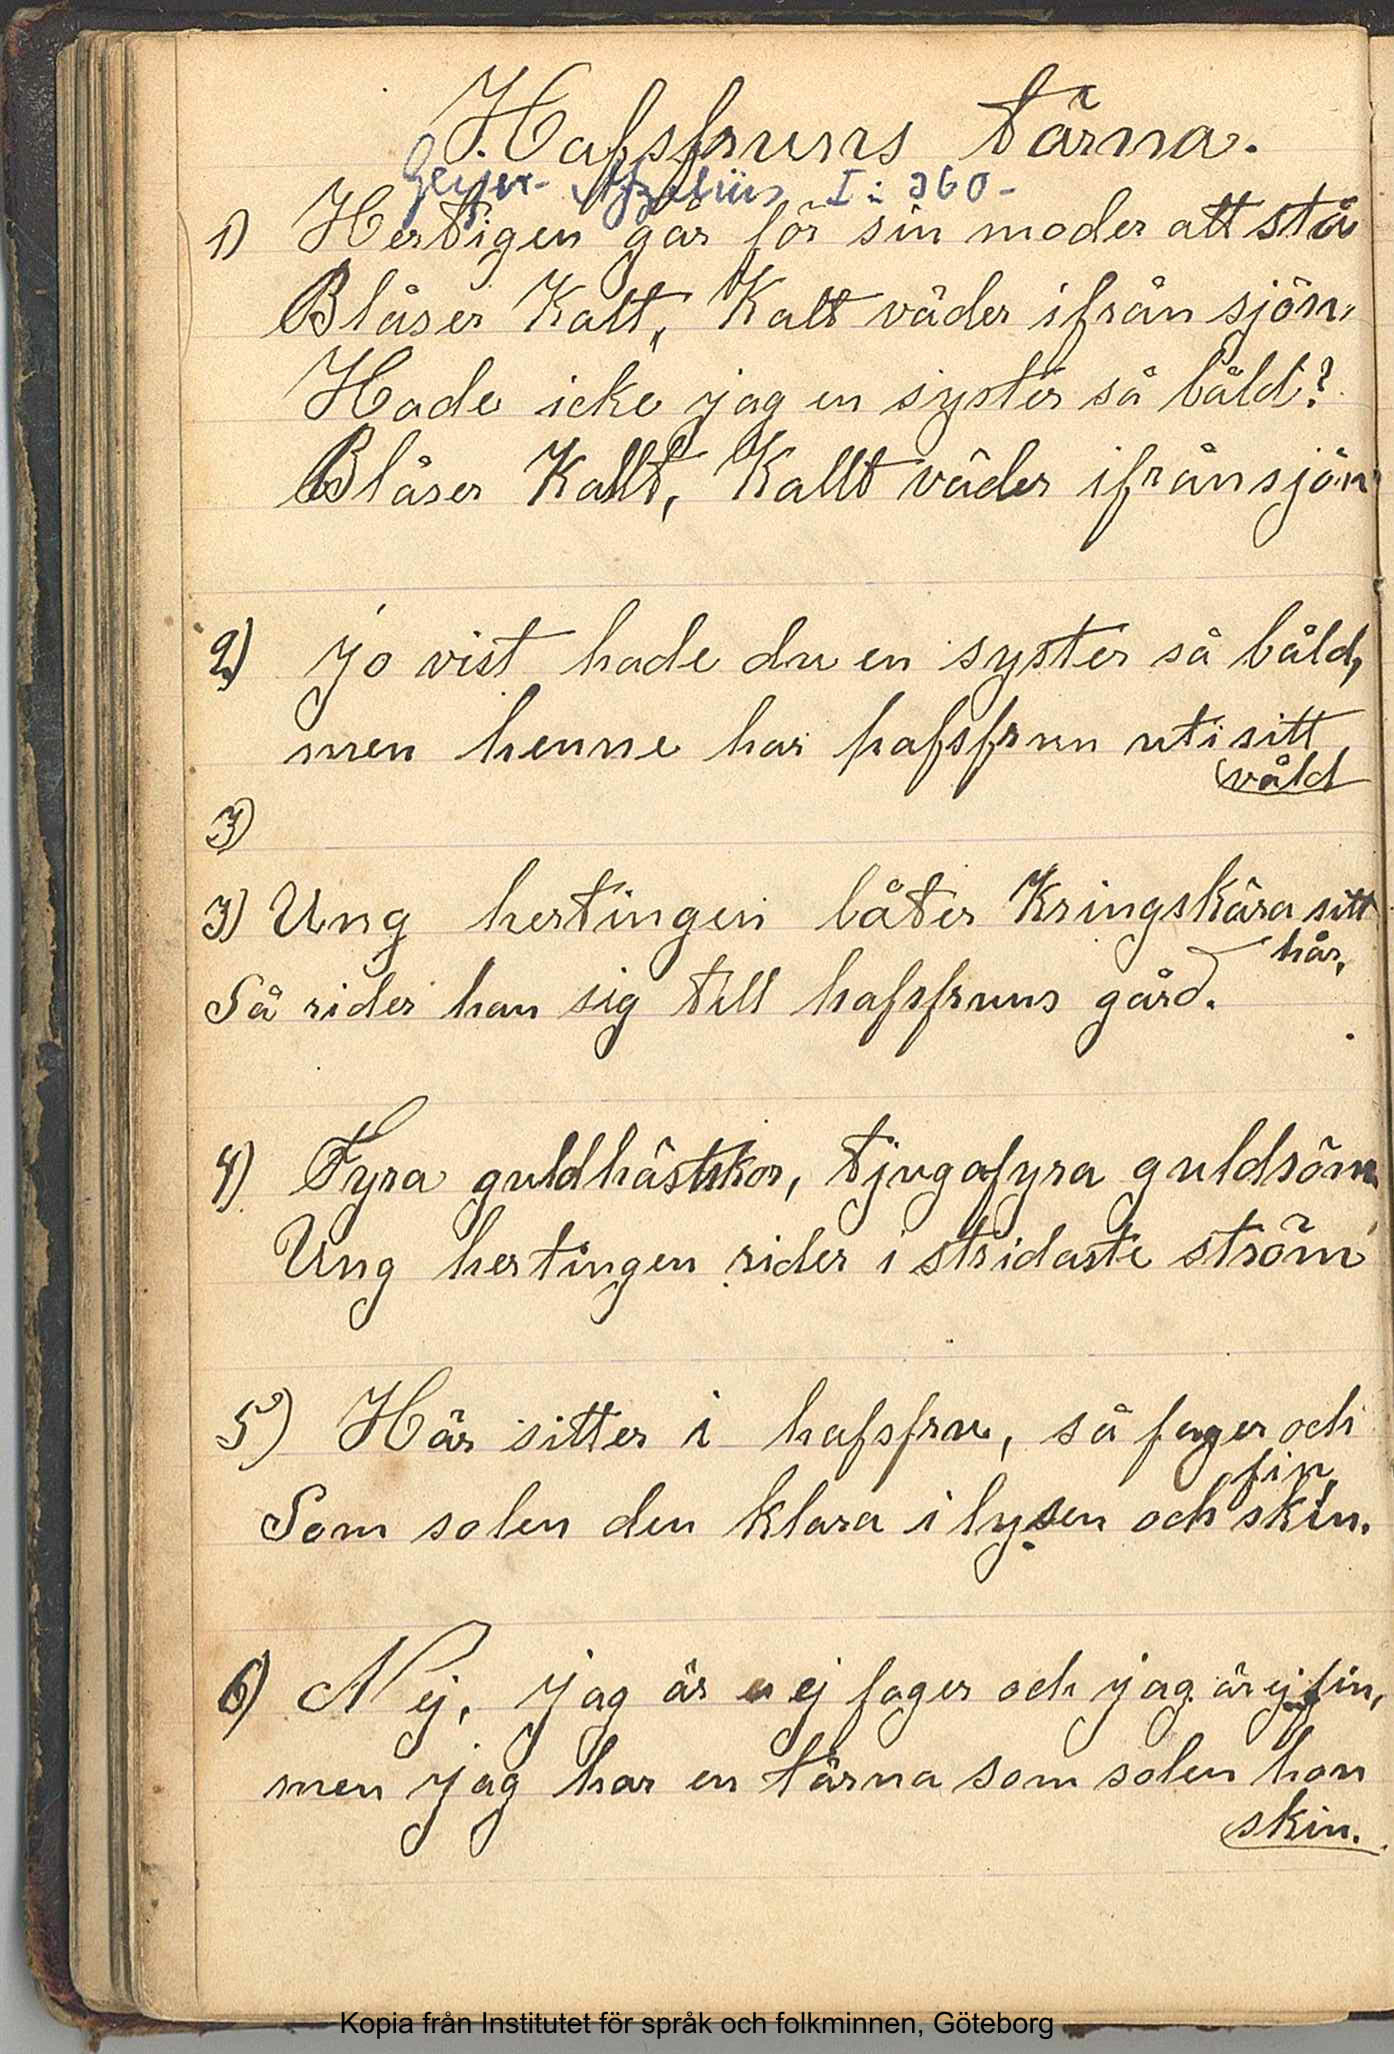 Hafsfruns tärna.
Geijer-Afzelius I: 360-
1) Hertigen går för sin moder att stå
Blåser Kalt, Kalt väder ifrån sjön,
Hade icke jag en syster så båld?
Blåser Kallt, Kallt väder ifrån sjön
2) Jo vist hade du en syster så båld,
men henne har hafsfrun uti sitt
våld
3)
3) Ung hertingen låter Kringskära sitt
hår,
Så rider han sig till hafsfruns gård.
4) Fyra guldhästskor, tjugafyra guldsöm
Ung hertingen rider i stridaste ström
5) Här sitter i hafsfru, så fager och
fin,
Som solen den klara i lysen och skin.
6) Nej, jag är ej fager och jag är ej fin,
men jag har en tärna som solen hon
skin.
Kopia från Institutet för språk och folkminnen, Göteborg